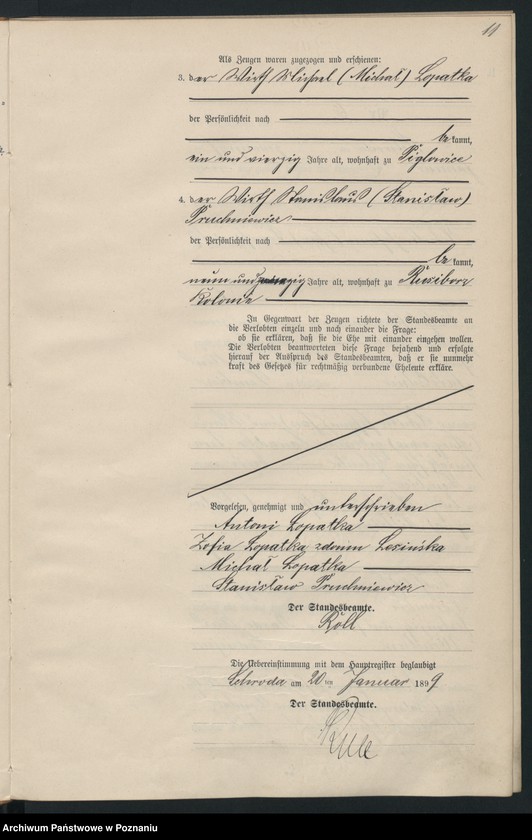 11
Als Zeugen waren zugezogen und erschienen:
3. der Wirth Michael (Michał) Lopatka
der Persönlichkeit nach
bekannt,
ein und vierzig Jahre alt, wohnhaft zu Piglowice
4. der Wirth Stanislaus (Stanisław)
Pruchniewicz
der Persönlichkeit nach
bekannt,
neun und zwanzig Jahre alt, wohnhaft zu Rusziborz
Kolonie
In Gegenwart der Zeugen richtete der Standesbeamte an
die Verlobten einzeln und nach einander die Frage:
ob sie erklären, daß sie die Ehe mit einander eingehen wollen.
Die Verlobten beantworteten diese Frage bejahend und erfolgte
hierauf der Ausspruch des Standesbeamten, daß er sie nunmehr
kraft des Gesetzes für rechtmäßig verbundene Eheleute erkläre.
Vorgelesen, genehmigt und unterschrieben
Antoni Łopatka
Zofia Łopatka zdomu Lesińska
Michał Łopatka
Stanisław Pruchniewicz
Der Standesbeamte.
Röll
Die Uebereinstimmung mit dem Hauptregister beglaubigt
Schroda am 20ten Januar 1899
Der Standesbeamte.
Archiwum Państwowe w Poznaniu